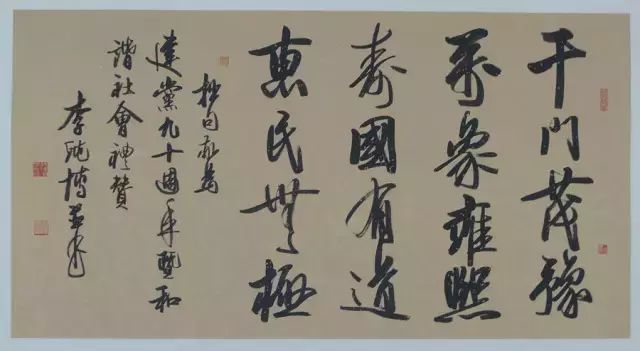 千門茂豫
萬象雍熙
壽國有道
惠民無極
抄句敬為
建黨九十週年暨和
諧社會禮贊
李純博並書